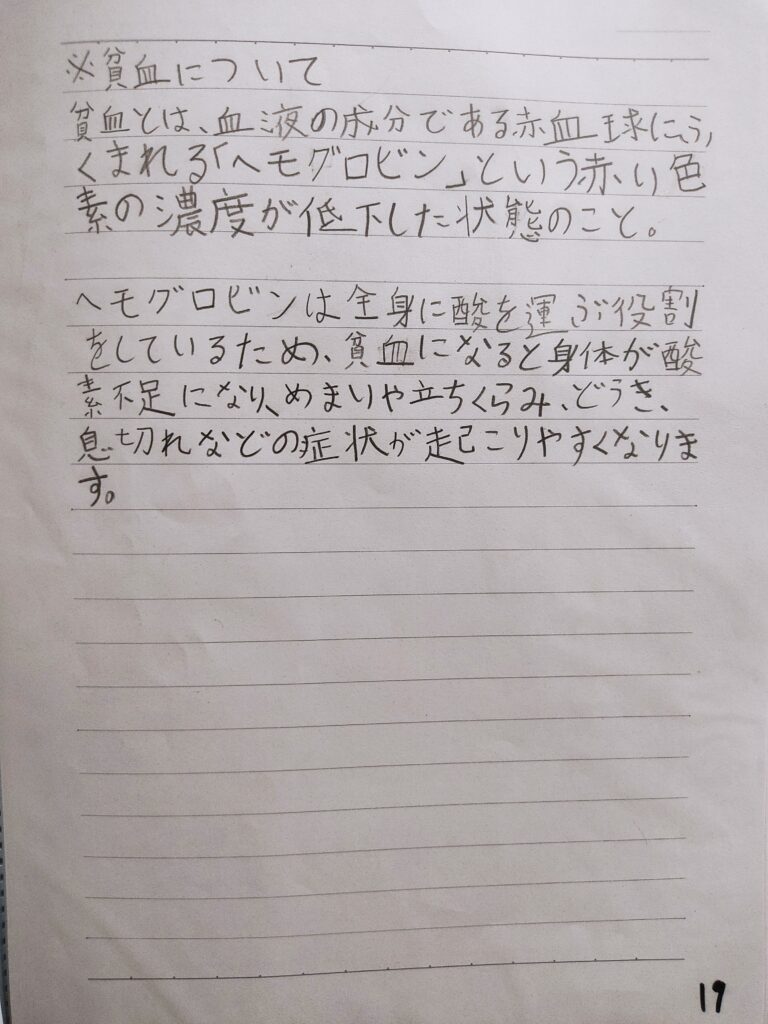 ※貧血について
貧血とは、血液の成分である赤血球にふ
くまれる「ヘモグロビン」という赤い色
素の濃度が低下した状態のこと。
ヘモグロビンは全身に酸を運ぶ役割
をしているため、貧血になると身体が酸
素不足になり、めまいや立ちくらみ、どうき、
息切れなどの症状が起こりやすくなりま
す。
19